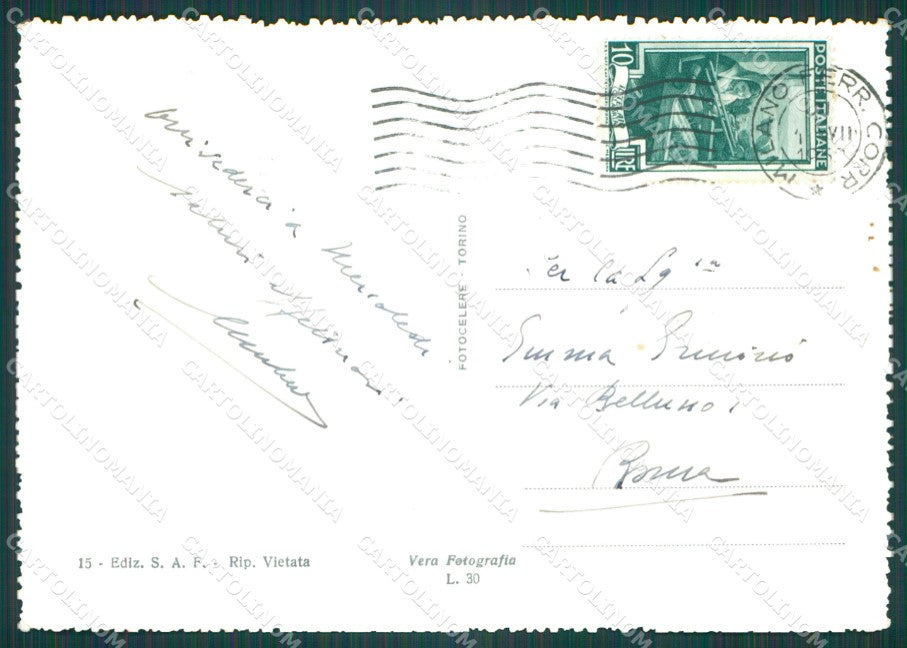 Arrivederci a Mercoledì
saluti affettuosi
POSTE ITALIANE
10 LIRE
MILANO FERR. CORR.
VII
FOTOCELERE - TORINO
Per la Sg.na
Emma
Via
Roma
15 - Ediz. S. A. F. - Rip. Vietata
Vera Fotografia
L. 30
CARTOLINOMANIA